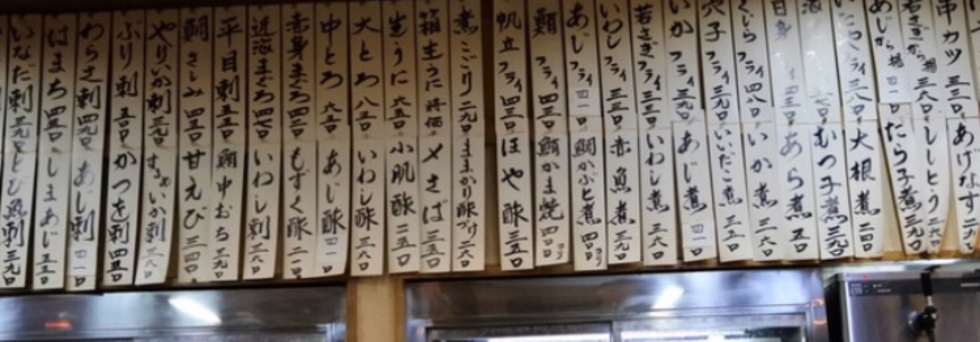 串カツ 三三〇
あげなす
若さぎから揚 三六〇
ししとう
あじから揚
たら子煮 三九〇
大根煮 二四〇
むつ子煮 三九〇
白身
あら煮 五〇
くじらフライ 四八〇
いか煮 三六〇
穴子フライ 三九〇
いいだこ煮 三五〇
いかフライ 三九〇
あじ煮 四一〇
若さぎフライ 三三〇
いわし煮 三六〇
いわしフライ 三三〇
赤魚煮 三九〇
あじフライ 四一〇
鯛かぶと煮
鮪フライ 四三〇
鮪かま焼 四〇〇
帆立フライ 四三〇
ほや酢 三五〇
煮こごり 二九〇
ままかり酢づけ 二六〇
箱生うに 時価
〆さば 三五〇
生うに 六五〇
小肌酢 二五〇
大とろ 八五〇
いわし酢 三六〇
中とろ 六五〇
あじ酢 四一〇
赤身まぐろ 四三〇
もずく酢 二一〇
近海まぐろ 四七〇
いわし刺 三六〇
平目刺 五五〇
鮪中おち 三九〇
鯛さしみ 四五〇
甘えび 三四〇
やりいか刺 三九〇
するめいか刺 三六〇
ぶり刺 五五〇
かつを刺 四五〇
わらさ刺 四九〇
あじ刺 四一〇
はまち 四五〇
しまあじ 五五〇
いなだ刺 三九〇
とび魚刺 三九〇